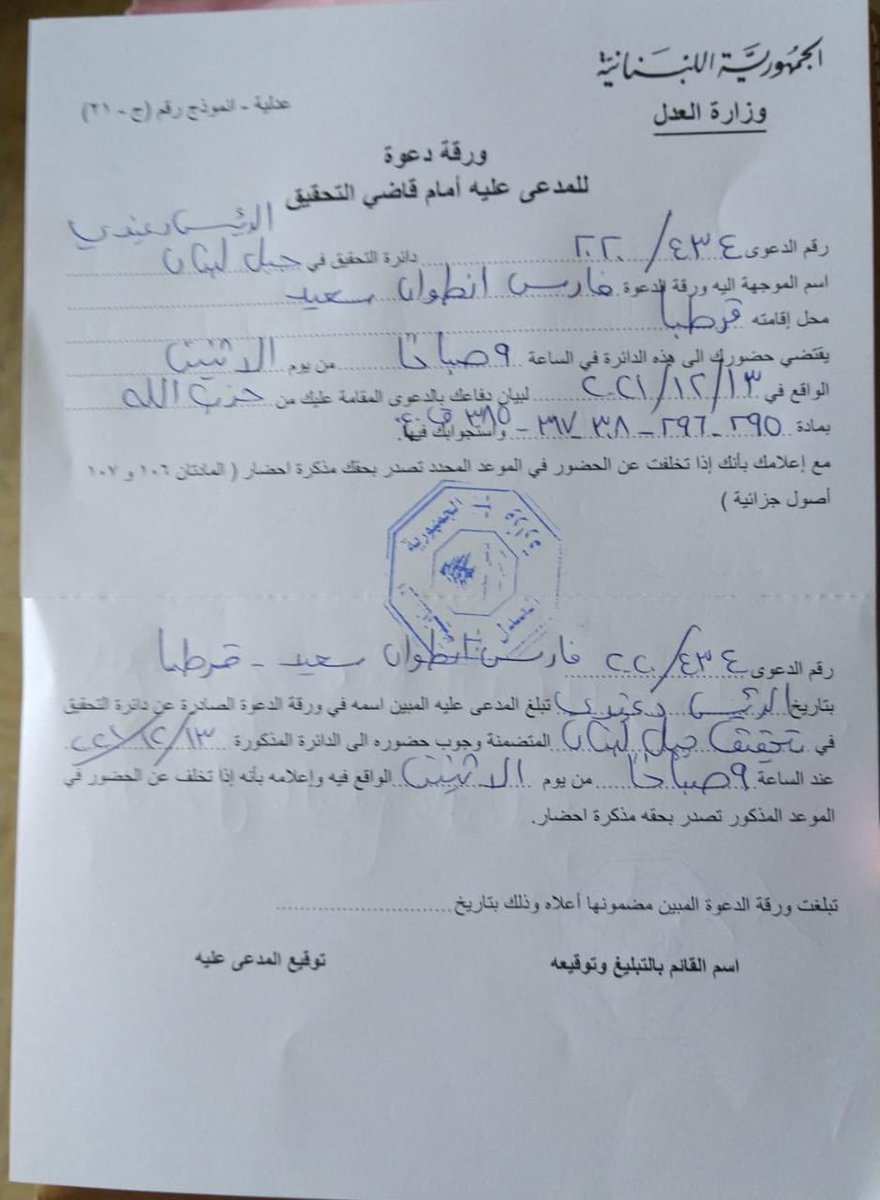 الجمهوريّة اللبنانية
وزارة العدل
عدلية - انموذج رقم (ج - ٢١)
ورقة دعوة
للمدعى عليه أمام قاضي التحقيق
رقم الدعوى ٤٣٤/٢٠٢٠ دائرة التحقيق في جبل لبنان
اسم الموجهة اليه ورقة الدعوة فارس انطوان سعيد
محل إقامته قرطبا
يقتضي حضورك الى هذه الدائرة في الساعة ٩ صباحًا من يوم الاثنين
الواقع في ١٣/١٢/٢٠٢١ لبيان دفاعك بالدعوى المقامة عليك من حزب الله
بمادة ٢٩٥ - ٢٩٦ - ٣٨ - ٣٩٧ - ٣٨٥ ق.ع. واستجوابك فيها.
مع إعلامك بأنك إذا تخلفت عن الحضور في الموعد المحدد تصدر بحقك مذكرة احضار ( المادتان ١٠٦ و ١٠٧
أصول جزائية )
الجمهورية
وزارة
رقم الدعوى ٤٣٤/٢٠٢٠ فارس انطوان سعيد - قرطبا
بتاريخ الرئيس تبلغ المدعى عليه المبين اسمه في ورقة الدعوة الصادرة عن دائرة التحقيق
في تحقيق جبل لبنان المتضمنة وجوب حضوره الى الدائرة المذكورة ١٣/١٢/٢٠٢١
عند الساعة ٩ صباحًا من يوم الاثنين الواقع فيه وإعلامه بأنه إذا تخلف عن الحضور في
الموعد المذكور تصدر بحقه مذكرة احضار.
تبلغت ورقة الدعوة المبين مضمونها أعلاه وذلك بتاريخ
اسم القائم بالتبليغ وتوقيعه
توقيع المدعى عليه